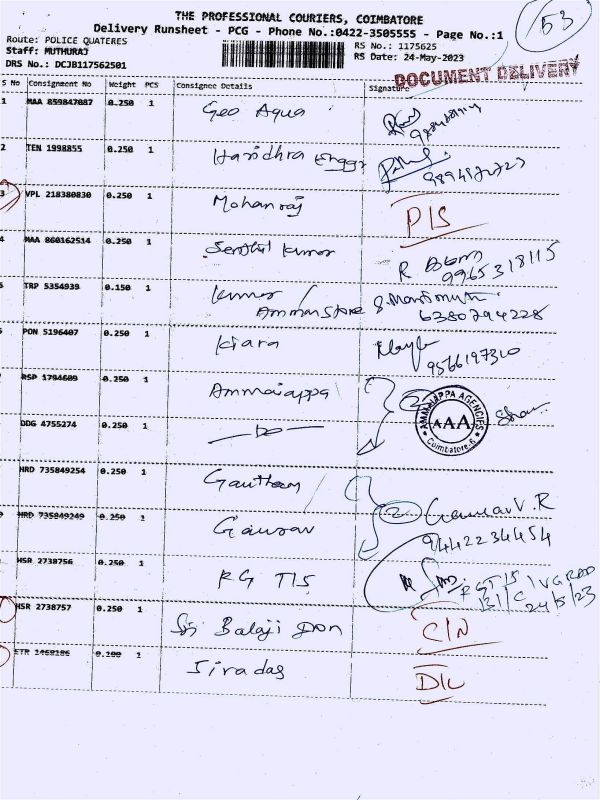 THE PROFESSIONAL COURIERS, COIMBATORE
53
Delivery Runsheet - PCG - Phone No.:0422-3505555 - Page No.:1
Route: POLICE QUATERES
RS No.: 1175625
Staff: MUTHURAJ
RS Date: 24-May-2023
DRS No.: DCJB117562501
DOCUMENT DELIVERY
S No Consignment No Weight PCS Consignee Details Signature
1 MAA 859847087 0.250 1 Geo Aqua
2 TEN 1998855 0.250 1 Haridhra Enggs
3 VPL 218380830 0.250 1 Mohanraj P/S
4 MAA 860162514 0.250 1 Senthil Kumar
9965318115
5 TRP 5354939 0.150 1 Kumar /
Amman Store
6380794228
PON 5196407 0.250 1 Kiara
9566197310
RSP 1794609 0.250 1 Ammaiappa 2
AMMAIAPPA AGENCIES AAA Coimbatore-6
DDG 4755274 0.250 1 — Do —
HRD 735849254 0.250 1 Gautham
2 Gaurav V.R
HRD 735849249 0.250 1 Gaurav
9442234454
HSR 2738756 0.250 1 RG TIS
24/5/23
HSR 2738757 0.250 1 Sri Balaji Don C/N
ETR 1468186 0.100 1 Sivadas D/L